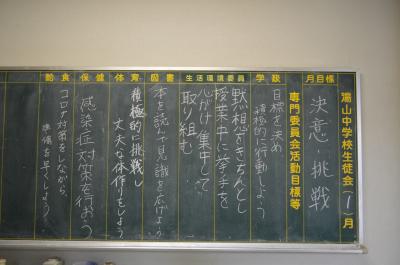 湯山中学校生徒会(1)月
専門委員会活動目標等
月目標
決意 挑戦
学級
目標を決め
積極的に行動しよう
生活環境委員
黙想をきちんとし
授業中に挙手を
心がけ集中して
取り組む
図書
本を読んで見識を広げよう
体育
積極的に挑戦し
丈夫な体作りをしよう
保健
感染症対策を行おう
給食
コロナ対策をしながら、
準備を早くしよう